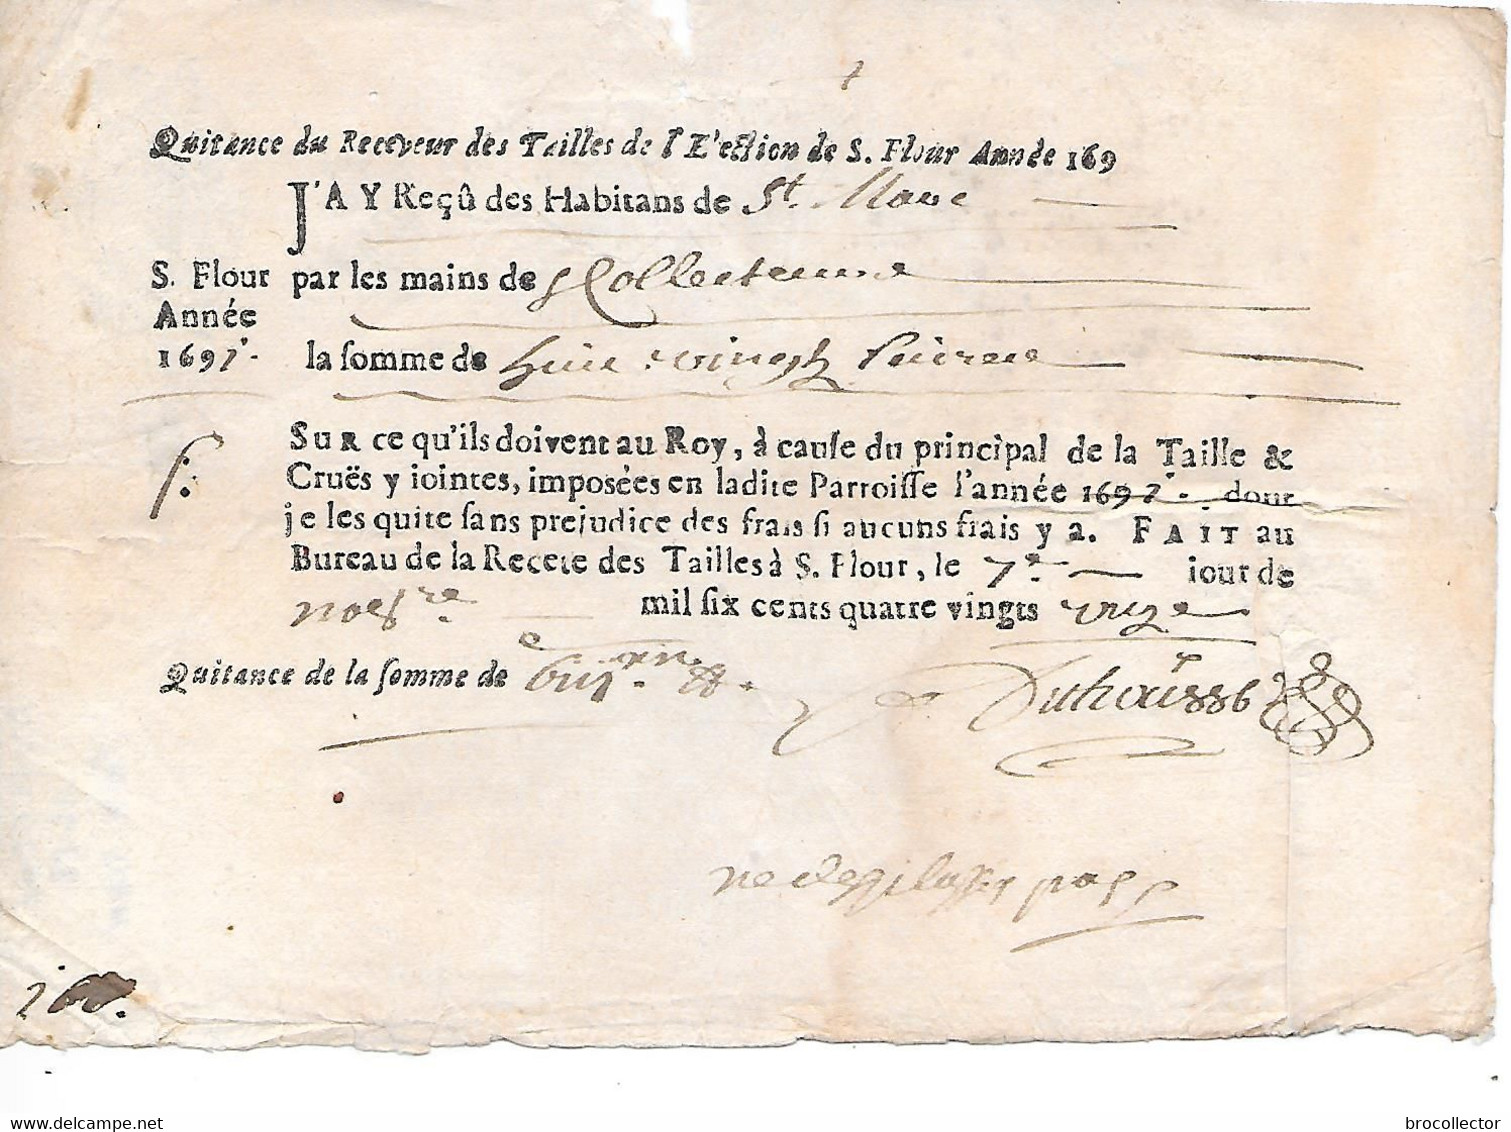 Quitance du Receveur des Tailles de l'Election de S. Flour Année 169
J'AY Reçû des Habitans de St.
S. Flour par les mains de Collecteurs
Année
1691. la somme de huict vingt livres
SUR ce qu'ils doivent au Roy, à cause du principal de la Taille &
Cruës y iointes, imposées en ladite Parroisse l'année 1691. dont
je les quite sans prejudice des frais si aucuns frais y a. FAIT au
Bureau de la Recete des Tailles à S. Flour, le 7e iour de
nobre mil six cents quatre vingts unze
Quitance de la somme de
ne pas
delcampe.net
brocollector